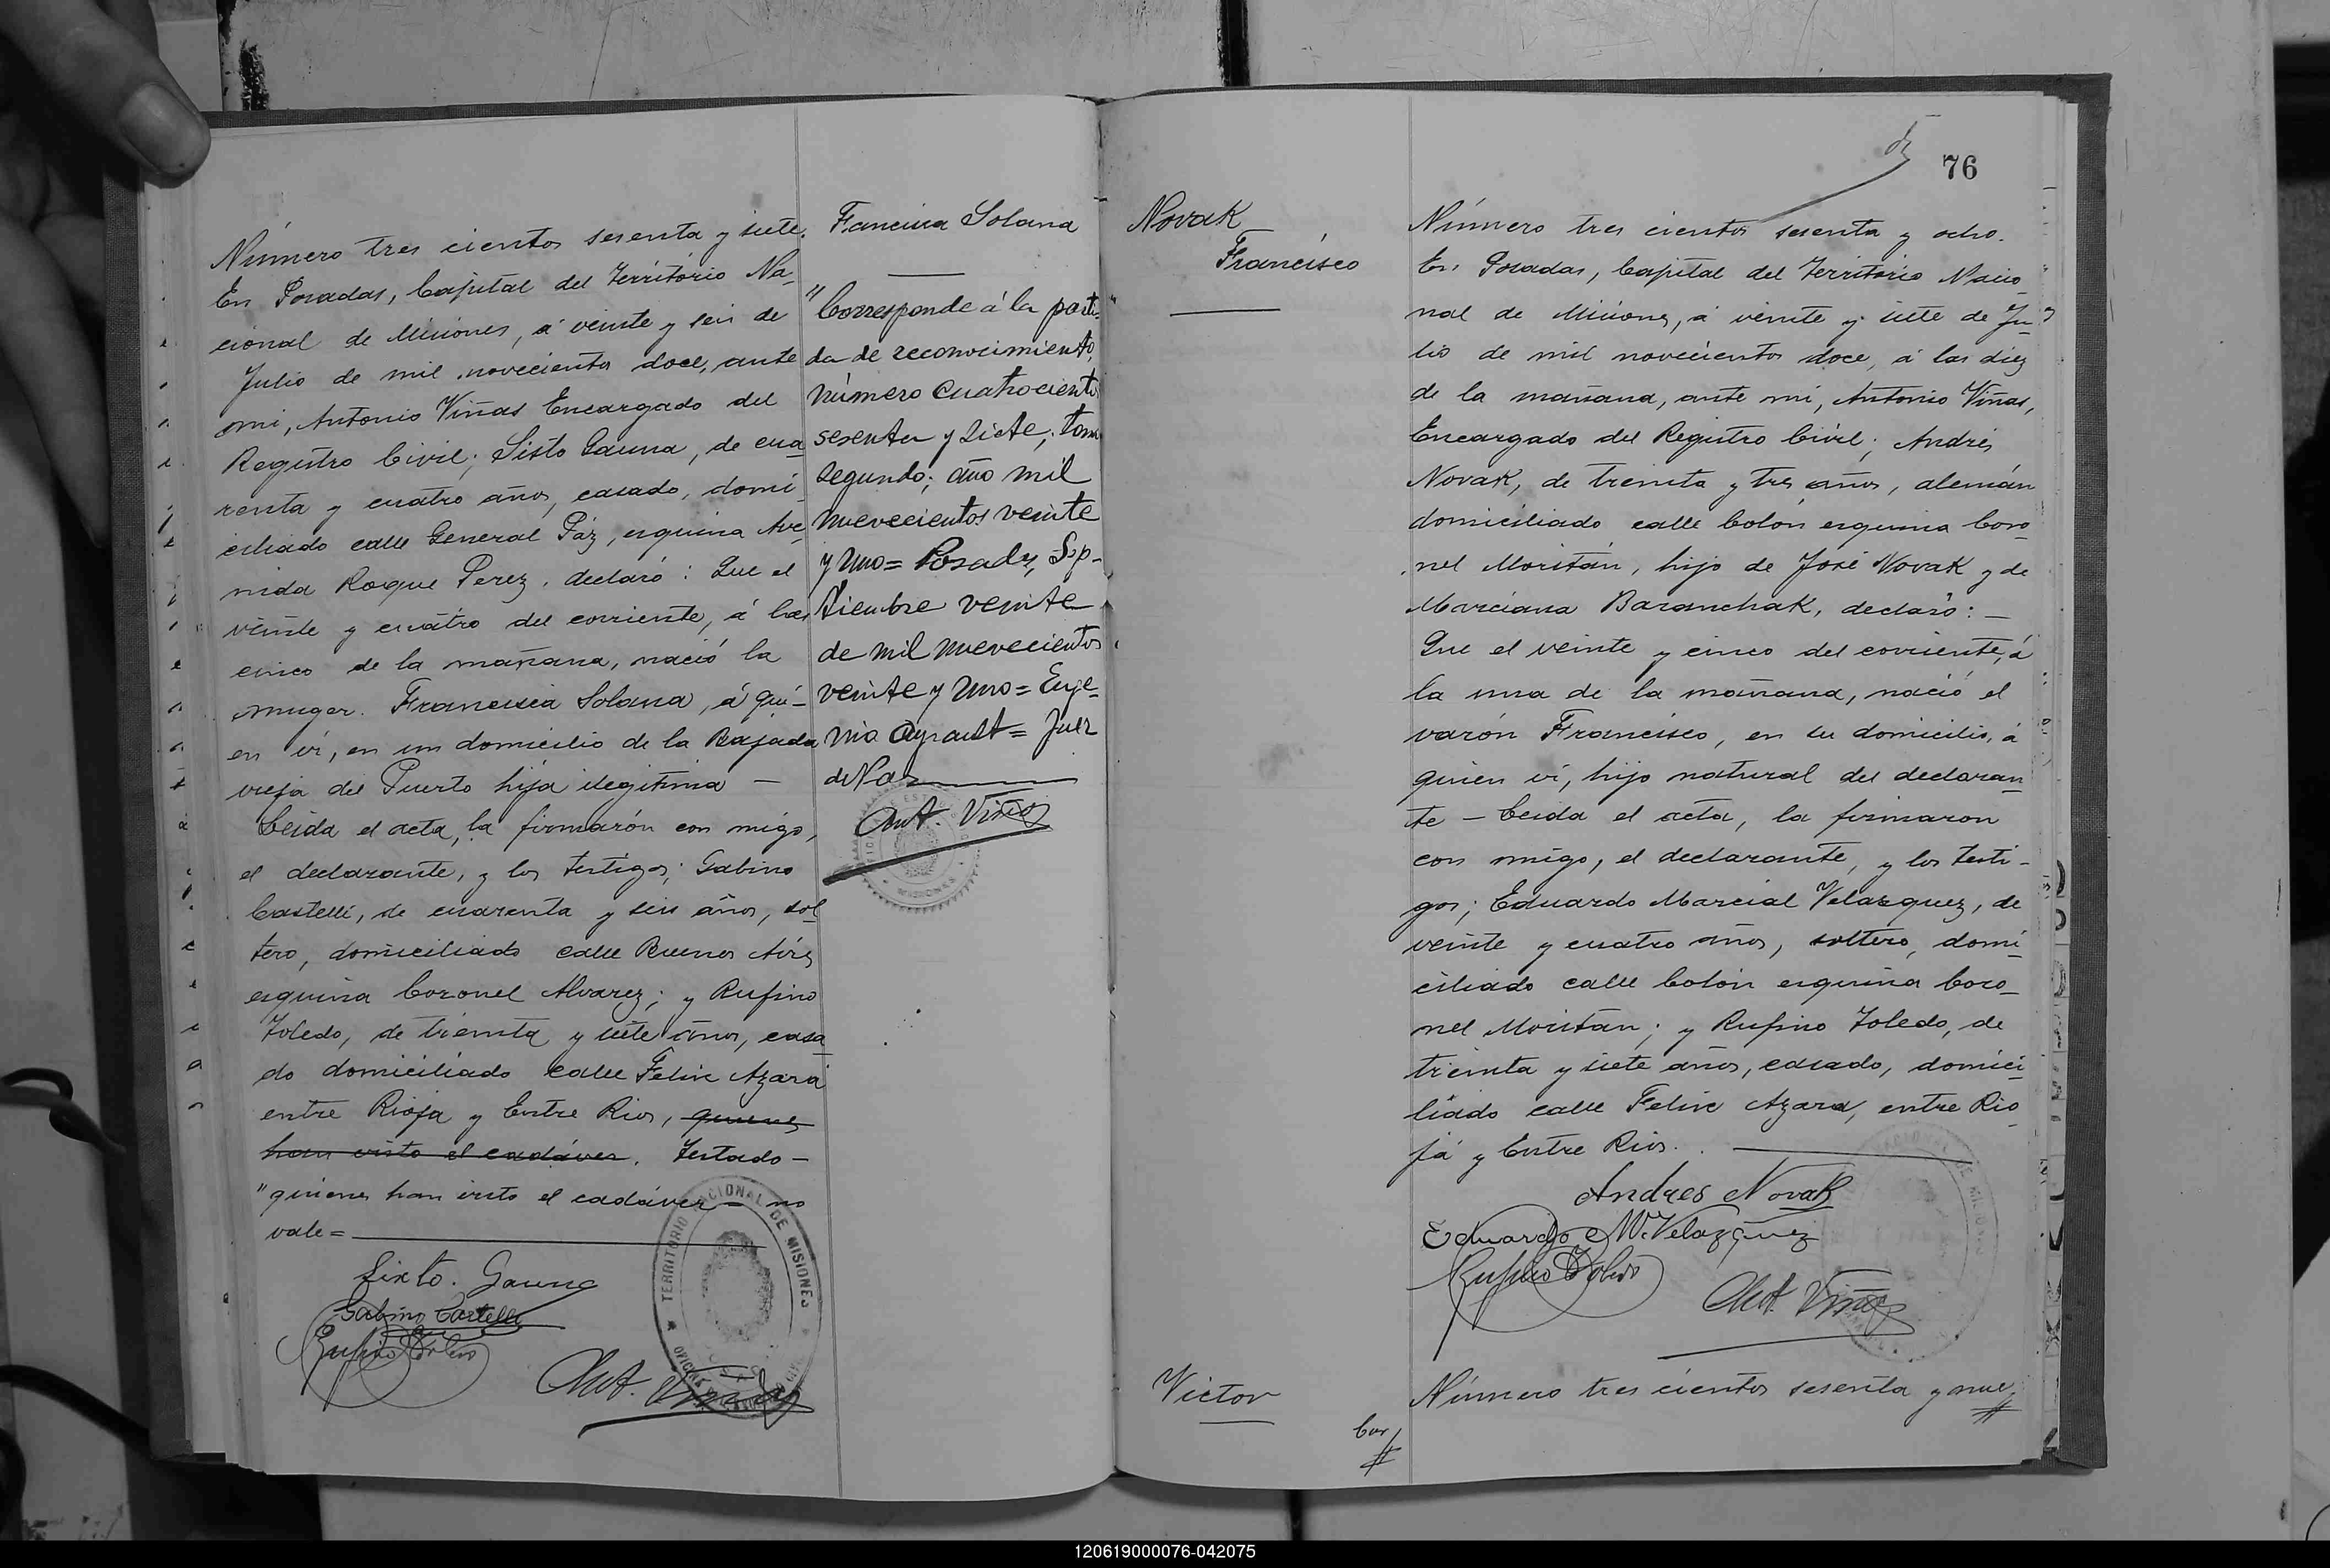 Número tres cientos sesenta y siete.
En Posadas, Capital del Territorio Na-
cional de Misiones, á veinte y seis de
Julio de mil novecientos doce, ante
mi, Antonio Viñas Encargado del
Registro Civil; Sisto Gauna, de cua
renta y cuatro años, casado, domi-
ciliado calle General Páz, esquina Ave
nida Roque Perez, declaró: Que el
veinte y cuatro del corriente, á las
cinco de la mañana, nació la
muger Francisca Solana, á qui-
en ví, en un domicilio de la Bajada
vieja del Puerto hija ilegitima —
Leida el acta, la firmarón con migo,
el declarante, y los testigos; Gabino
Castelli, de cuarenta y seis años, sol
tero, domiciliado calle Buenos Aires
esquina Coronel Alvarez; y Rufino
Toledo, de treinta y siete años, casa
do domiciliado calle Felix Azara
entre Rioja y Entre Rios, quienes
han visto el cadáver. Testado —
"quienes han visto el cadáver — no
vale =
Sixto. Gauna
Gabino Castelli
Rufino Toledo
Ant. Viñas
TERRITORIO NACIONAL DE MISIONES
Francisca Solana
"Corresponde á la parti-
da de reconocimiento,
número cuatrociento
sesenta y siete, tomo
segundo; año mil
nuevecientos veinte
y uno = Posadas, Sep-
tiembre veinte
de mil nuevecientos
veinte y uno = Euge-
nio = Juez
de Paz
Ant. Viñas
MISIONES
76
Novak
Francisco
Número tres cientos sesenta y ocho.
En Posadas, Capital del Territorio Nacio
nal de Misiones, á veinte y siete de Ju
lio de mil novecientos doce, á las diez
de la mañana, ante mi, Antonio Viñas,
Encargado del Registro Civil; Andrés
Novak, de treinta y tres años, alemán
domiciliado calle Colón esquina Coro
nel Moritán, hijo de José Novak y de
Marciana Baranchak, declaró: —
Que el veinte y cinco del corriente, á
la una de la mañana, nació el
varón Francisco, en su domicilio, á
quien ví, hijo natural del declaran
te — Leida el acta, la firmaron
con migo, el declarante, y los testi-
gos; Eduardo Marcial Velazquez, de
veinte y cuatro años, soltero, domi
ciliado calle Colón esquina Coro
nel Moritán; y Rufino Toledo, de
treinta y siete años, casado, domici
liado calle Felix Azara, entre Rio
já y Entre Rios.
Andres Novak
Eduardo M. Velazquez
Rufino Toledo
Ant. Viñas
Victor
Número tres cientos sesenta y nue
120619000076-042075